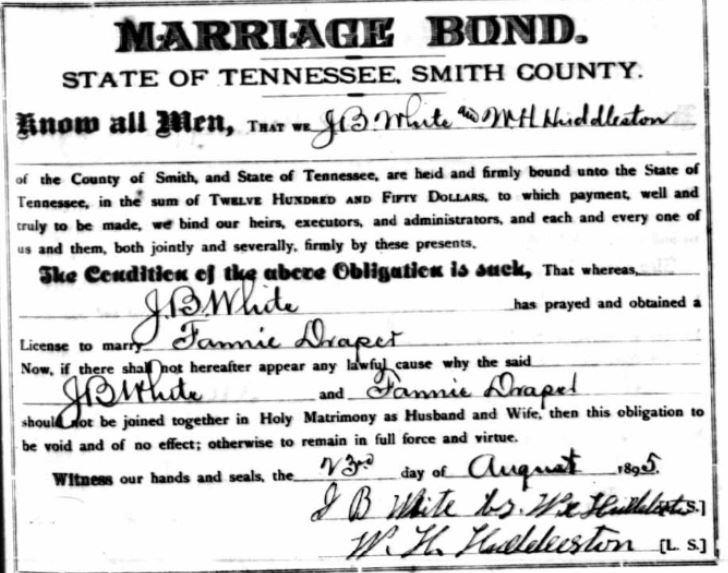 MARRIAGE BOND.
STATE OF TENNESSEE, SMITH COUNTY.
Know all Men, THAT WE J.B. White and W.H. Huddleston
of the County of Smith, and State of Tennessee, are held and firmly bound unto the State of
Tennessee, in the sum of TWELVE HUNDRED AND FIFTY DOLLARS, to which payment, well and
truly to be made, we bind our heirs, executors, and administrators, and each and every one of
us and them, both jointly and severally, firmly by these presents.
The Condition of the above Obligation is such, That whereas,
J.B. White has prayed and obtained a
License to marry Fannie Draper
Now, if there shall not hereafter appear any lawful cause why the said
J.B. White and Fannie Draper
should not be joined together in Holy Matrimony as Husband and Wife, then this obligation to
be void and of no effect; otherwise to remain in full force and virtue.
Witness our hands and seals, the 23rd day of August 1895.
J B White by W H Huddleston [L. S.]
W. H. Huddleston [L. S.]